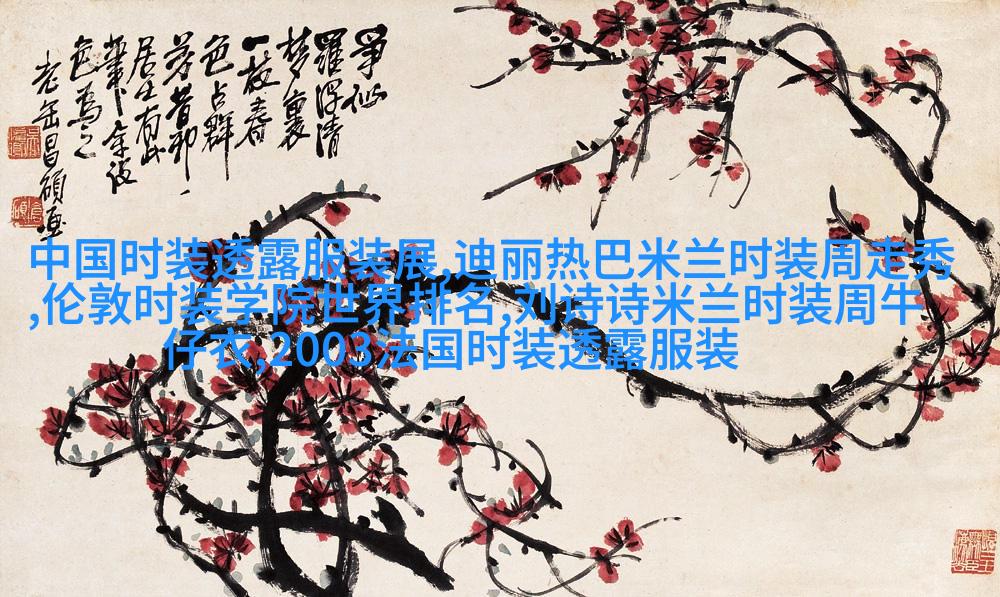 爭似
羅浮清
夢裏
一枝春
色占群
芳昔邪
居士有此
筆
色為之
老缶昌碩畫
中国时装透露服装展,迪丽热巴米兰时装周走秀
,伦敦时装学院世界排名,刘诗诗米兰时装周牛
仔衣,2003法国时装透露服装